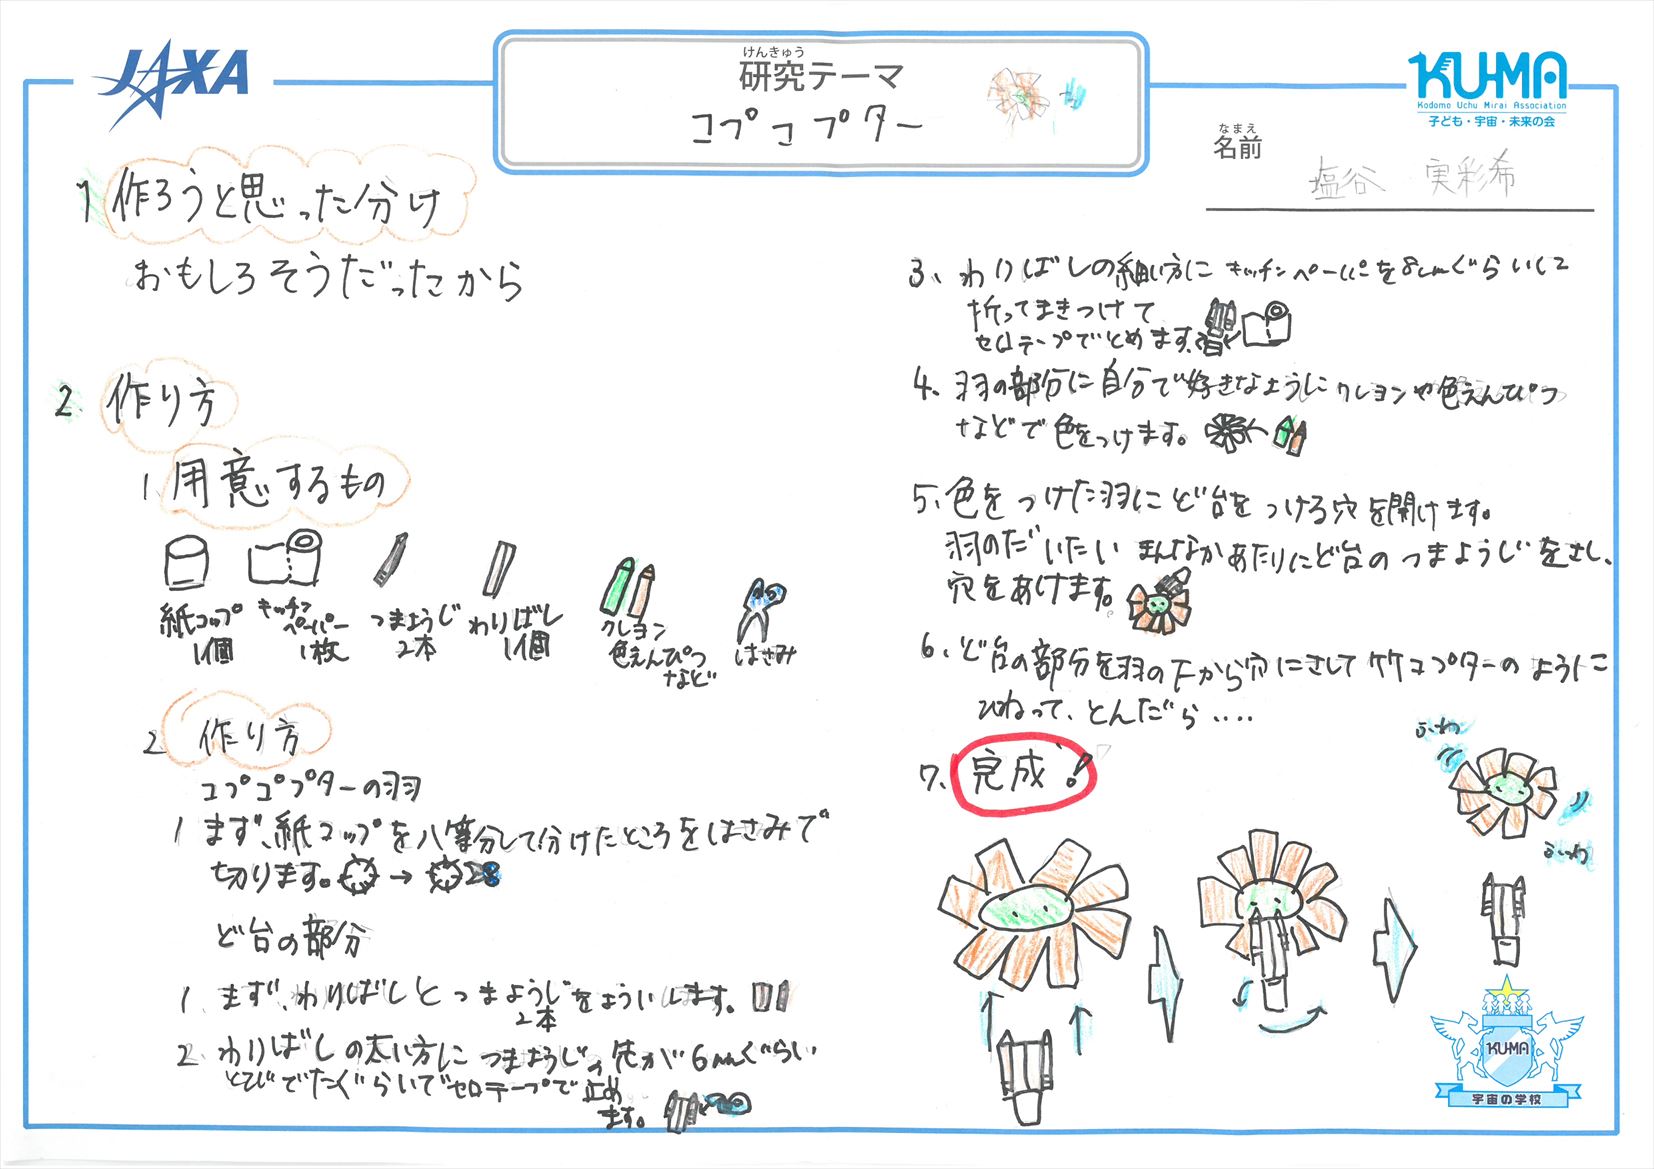 JAXA
けんきゅう
研究テーマ
コプコプター
KU-MA
Kodomo Uchu Mirai Association
子ども・宇宙・未来の会
なまえ
名前
塩谷 実彩希
1 作ろうと思った分け
おもしろそうだったから
2. 作り方
1. 用意するもの
紙コップ
1個
キッチン
ペーパー
1枚
つまようじ
2本
わりばし
1個
クレヨン
色えんぴつ
など
はさみ
2 作り方
コプコプターの羽
1 まず、紙コップを八等分して分けたところをはさみで
切ります。→
ど台の部分
1. まず、わりばしとつまようじをよういします。
2本
2. わりばしの太い方につまようじの先が6mmぐらい
とびでたぐらいでセロテープで止め
ます。
3. わりばしの細い方にキッチンペーパーを8cmぐらいにして
折ってまきつけて
セロテープでとめます。
4. 羽の部分に自分で好きなようにクレヨンや色えんぴつ
などで色をつけます。
5. 色をつけた羽にど台をつける穴を開けます。
羽のだいたいまんなかあたりにど台のつまようじをさし、
穴をあけます。
6. ど台の部分を羽の下から穴にさして竹コプターのように
ひねって、とんだら....
7. 完成!
ふわ
ふわ
KU-MA
宇宙の学校